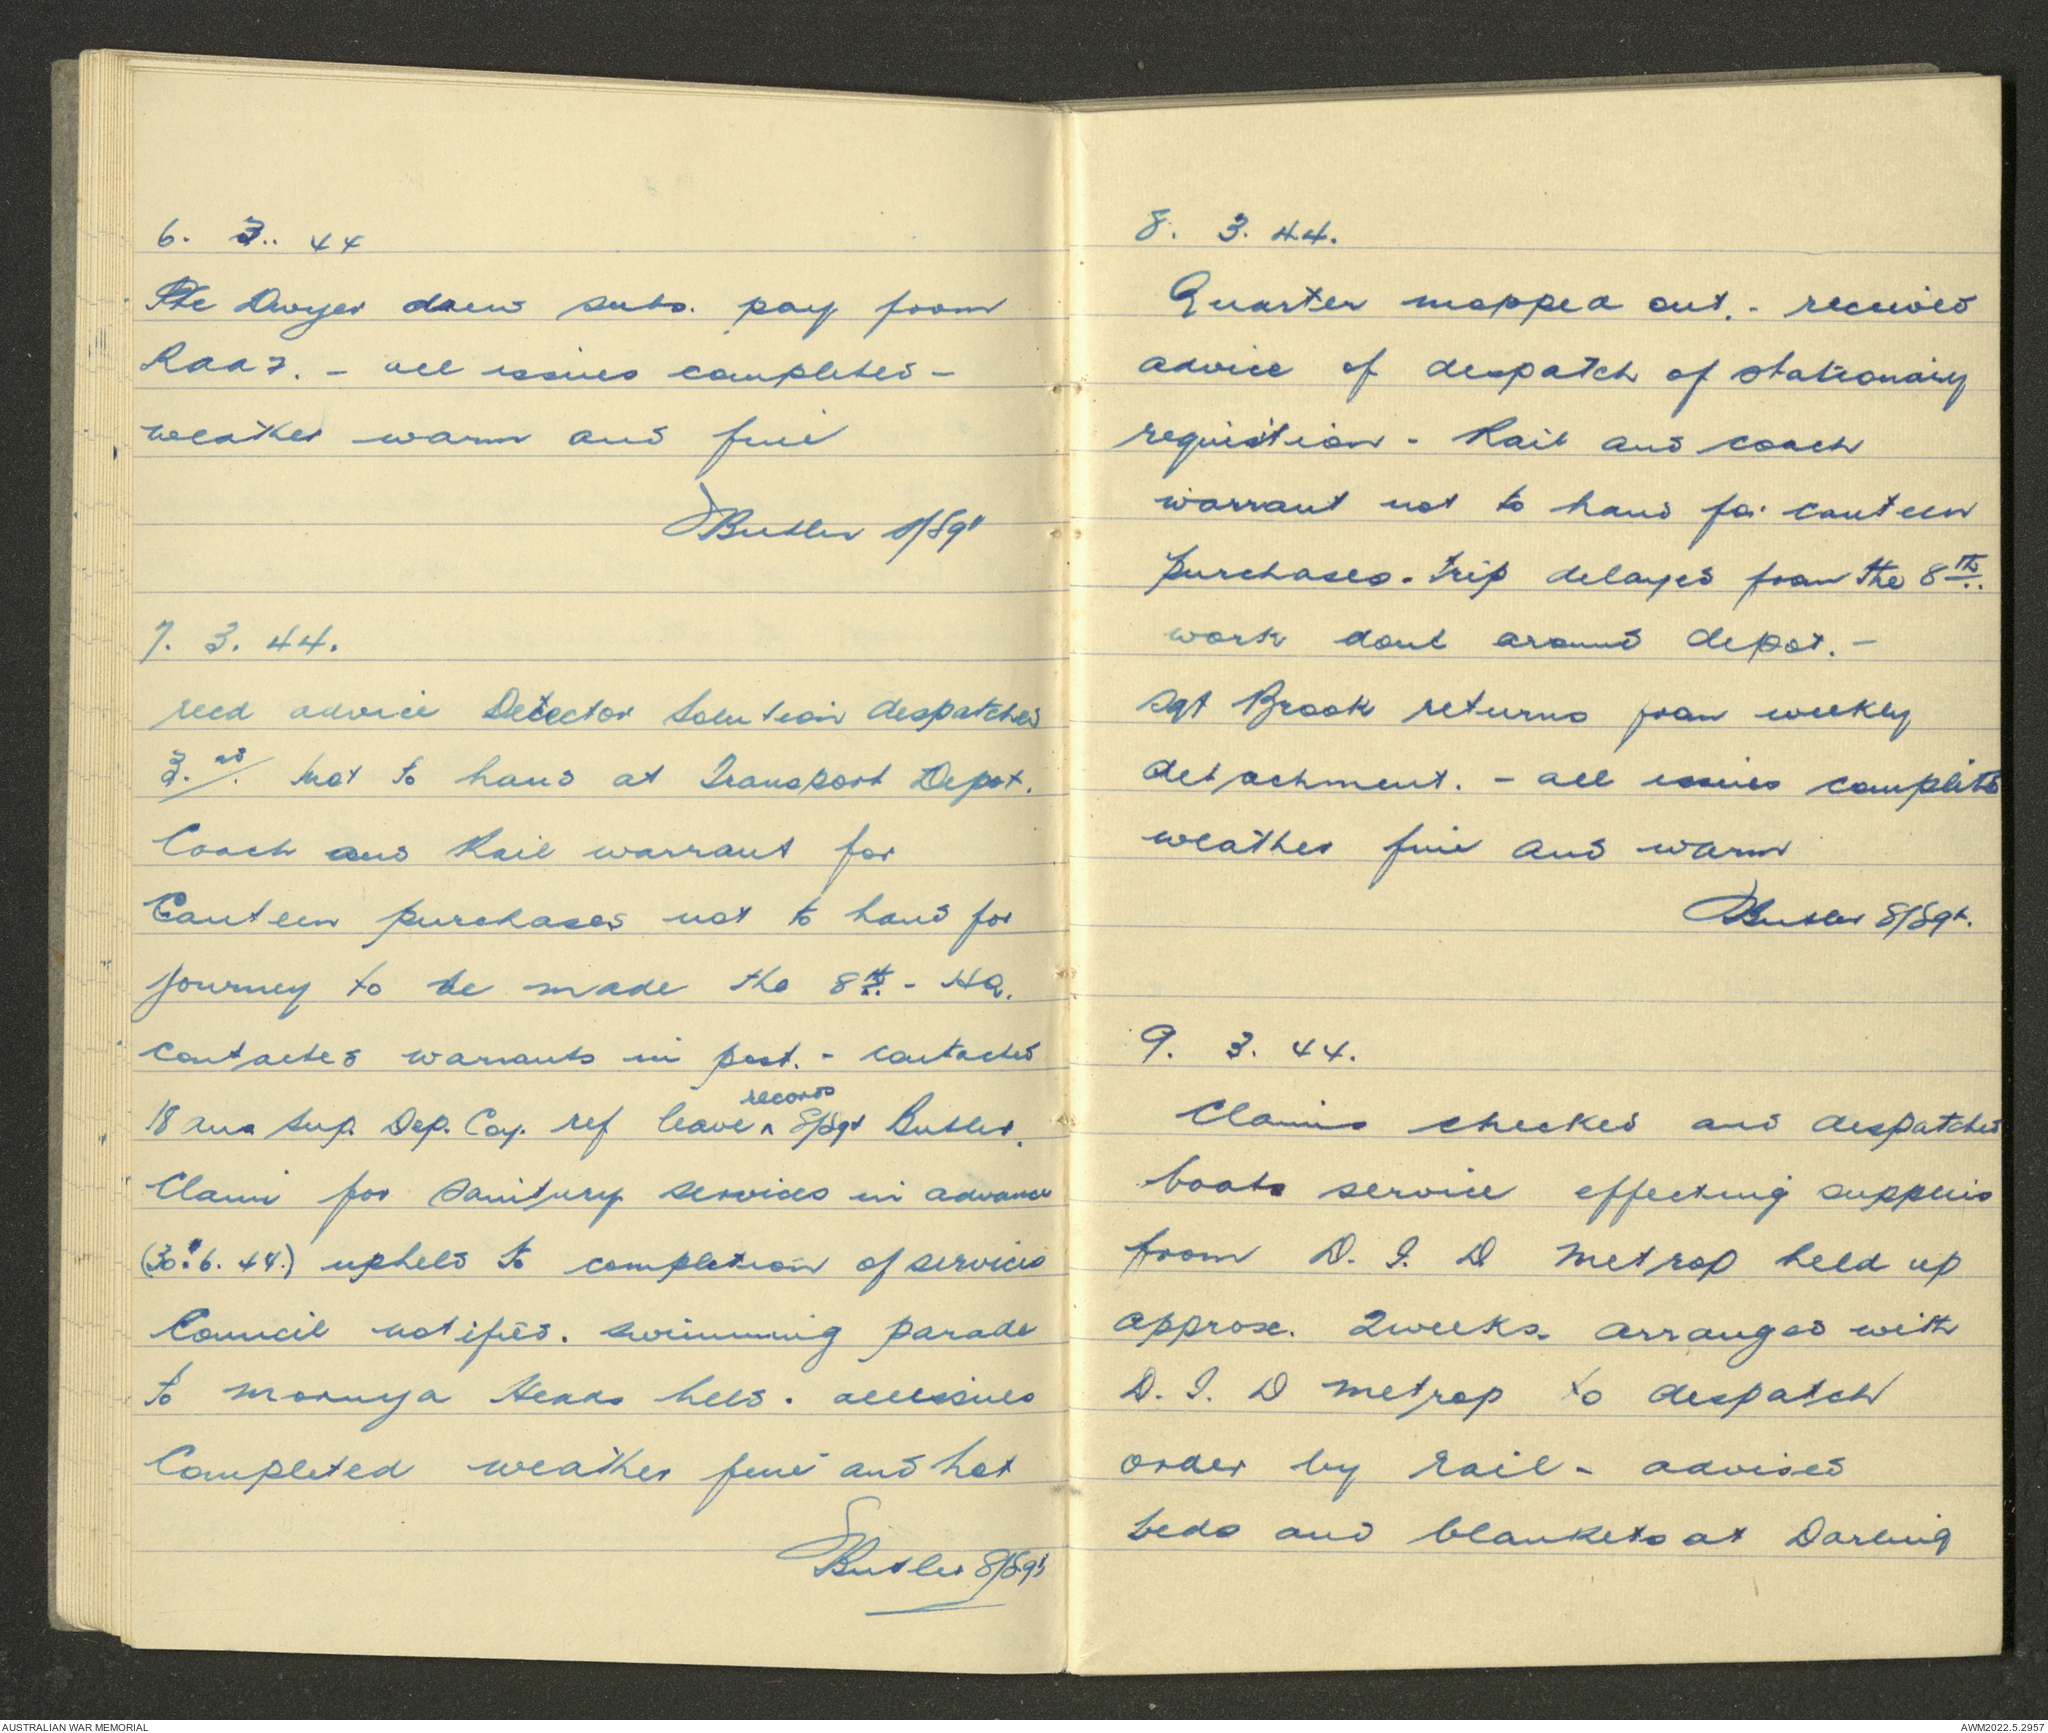 6. 3. 44
Pte Dwyer drew subs. pay from
RAAF. - all issues completed -
weather warm and fine
Butler S/Sgt
7. 3. 44.
recd advice Detector Solution despatched
3.rd. Not to hand at Transport Depot.
Coach and Rail warrant for
Canteen purchases not to hand for
journey to be made the 8th. - HQ.
contacted warrants in post. - contacted
records
18 Aus Sup. Dep. Coy. ref leave ^ S/Sgt Butler.
Claim for Sanitury services in advance
(30.6.44.) upheld to completion of services
Council notified. swimming parade
to Moruya Heads held. all issues
Completed weather fine and hot
Butler S/Sgt
8. 3. 44.
Quarter mopped out. - received
advice of despatch of stationary
requistion - Rail and coach
warrant not to hand for canteen
purchases. trip delayed from the 8th.
work done around depot. -
Sgt Brook returns from weekly
detachment. - all issues completed
weather fine and warm
Butler S/Sgt.
9. 3. 44.
Claims checked and despatched
boats service effecting supplies
from D. I. D Metrop held up
approx. 2 weeks. arranged with
D. I. D Metrop to despatch
order by rail - advised
beds and blankets at Darling
AUSTRALIAN WAR MEMORIAL
AWM2022.5.2957